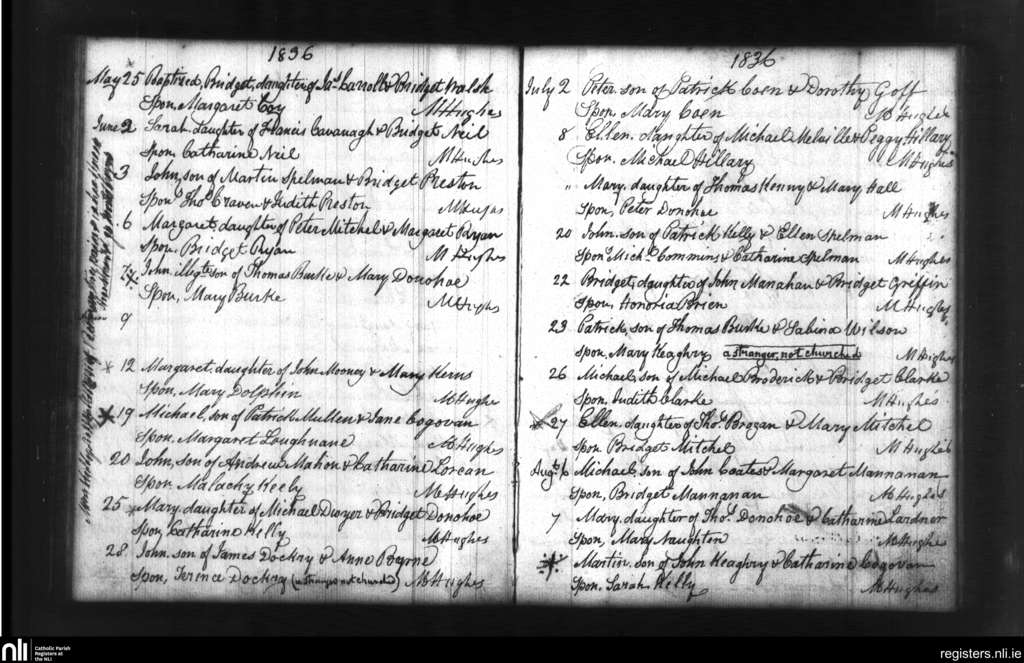 1836
May 25 Baptised, Bridget, daughter of Jas Carroll & Bridget Walsh
Spon, Margaret Coy M Hughes
June 2 Sarah daughter of Francis Cavanagh & Bridget Neil
Spon, Catharine Neil M Hughes
3 John, son of Martin Spelman & Bridget Preston
Spon Thos Craven & Judith Preston M Hughes
6 Margaret, daughter of Peter Mitchel & Margaret Ryan
Spon, Bridget Ryan M Hughes
7 John son of Thomas Burke & Mary Donohoe
Spon, Mary Burke M Hughes
9
12 Margaret, daughter of John Mooney & Mary Kerns
Spon, Mary Dolphin M Hughes
19 Michael, son of Patrick Mullen & Jane Cogovan
Spon, Margaret Loughnane M Hughes
20 John, son of Andrew Mahon & Catharine Lorean
Spon Malachy Heely M Hughes
25 Mary, daughter of Michael Dwyer & Bridget Donohoe
Spon, Catharine Kelly M Hughes
28 John, son of James Dockry & Anne Byrne
Spon, Terence Dockry (a stranger not churched) M Hughes
1836
July 2 Peter son of Patrick Coen & Dorothy Goff
Spon, Mary Coen M Hughes
8 Ellen, daughter of Michael Melville & Peggy Hillary
Spon. Michael Hillary M Hughes
" Mary, daughter of Thomas Kenny & Mary Hall
Spon, Peter Donohoe M Hughes
20 John, son of Patrick Kelly & Ellen Spelman
Spon Michl Commins & Catharine Spelman M Hughes
22 Bridget, daughter of John Manahan & Bridget Griffin
Spon, Honoria Brien M Hughes
23 Patrick, son of Thomas Burke & Sabina Wilson
Spon, Mary Keaghry a stranger, not churched M Hughes
26 Michael, son of Michael Broderick & Bridget Clarke
Spon, Judith Clarke M Hughes
27 Ellen, daughter of Thos Brogan & Mary Mitchel
Spon Bridget Mitchel M Hughes
Augt 6 Michael, son of John Coates & Margaret Mannanan
Spon, Bridget Mannanan M Hughes
7 Mary, daughter of Thos Donohoe & Catharine Lardner
Spon, Mary Naughten M Hughes
Martin, son of John Keaghry & Catharine Cogovan
Spon, Sarah Kelly M Hughes
nli Catholic Parish
Registers at
the NLI
registers.nli.ie